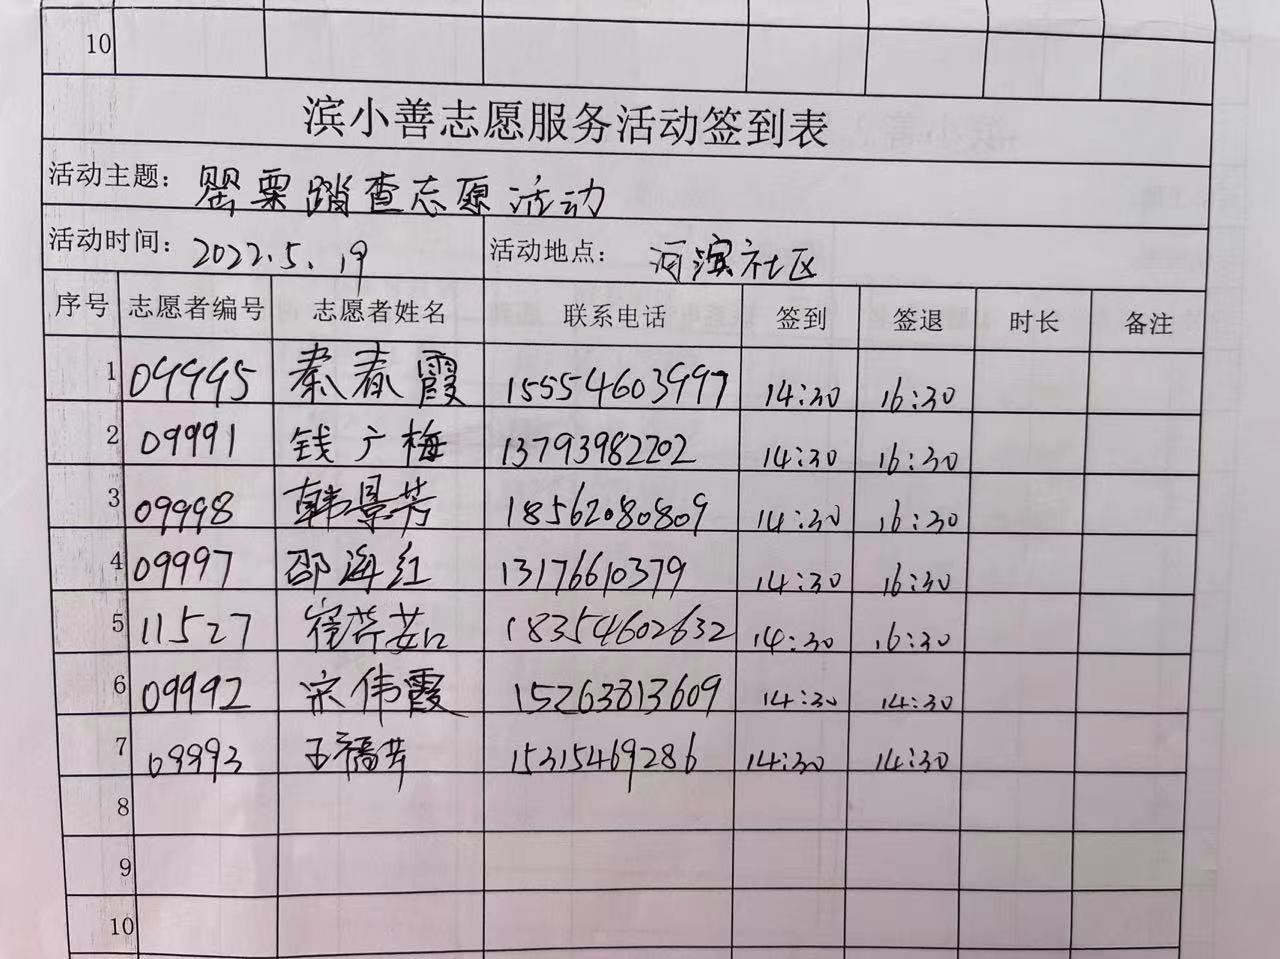 10
滨小善志愿服务活动签到表
活动主题: 罂粟踏查志愿活动
活动时间: 2022.5.19 活动地点: 河滨社区
序号 志愿者编号 志愿者姓名 联系电话 签到 签退 时长 备注
1 09995 秦春霞 15554603997 14:30 16:30
2 09991 钱广梅 13793982202 14:30 16:30
3 09998 韩景芳 18562080809 14:30 16:30
4 09997 邵海红 13176610379 14:30 16:30
5 11527 崔芹茹 18354602632 14:30 16:30
6 09992 宋伟霞 15263813609 14:30 14:30
7 09993 王福芹 15315469286 14:30 14:30
8
9
10